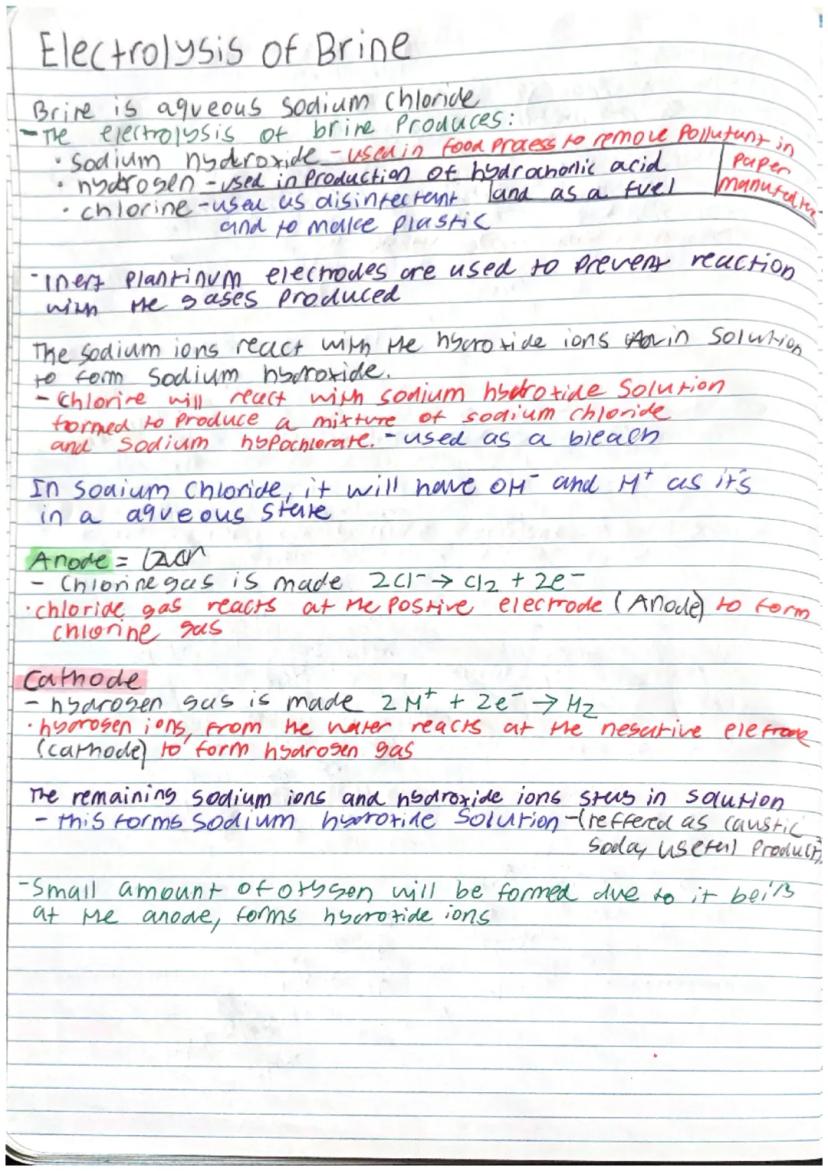 Electrolysis of Brine
Brine is aqueous sodium chloride
- The electrolysis of brine produces:
• sodium hydroxide - used in food process to remove pollutant in paper
• hydrogen - used in production of hydrochonic acid and as a fuel
• chlorine - used as disinfectant
and to make plastic
- Inert plantinum electrodes are used to prevent reaction
with the gases produced
The sodium ions react with the hydroxide ions in solution
to form sodium hydroxide.
- Chlorine will react with sodium hydroxide solution
formed to produce a mixture of sodium chloride
and sodium hypochlorate. - used as a bleach
In sodium chloride, it will have OH⁻ and H⁺ as it's
in a aqueous state
Anode =
- Chlorine gas is made 2Cl⁻ → Cl₂ + 2e⁻
• chloride gas reacts at the postive electrode (Anode) to form
chlorine gas
Cathode
- hydrogen gas is made 2H⁺ + 2e⁻ → H₂
• hydrogen ions, from the water reacts at the negative
(cathode) to form hydrogen gas
The remaining sodium ions and hydroxide ions stay in solution
- this forms sodium hydroxide solution - (reffered as caustic
soda, useful product)
- Small amount of oxygen will be formed due to it being
at the anode, forms hydroxide ions